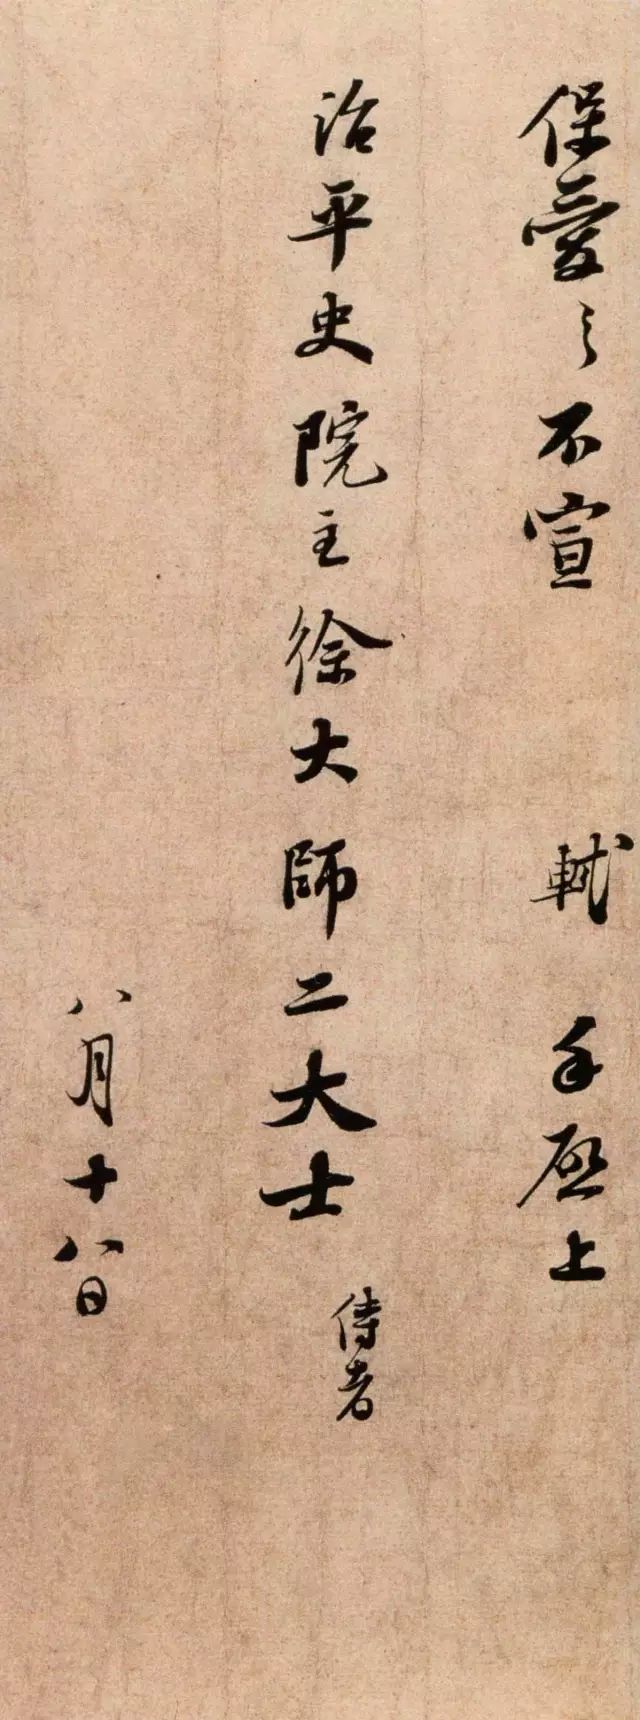 保愛々不宣 軾手啟上
治平史院主徐大師二大士 侍者
八月十八日